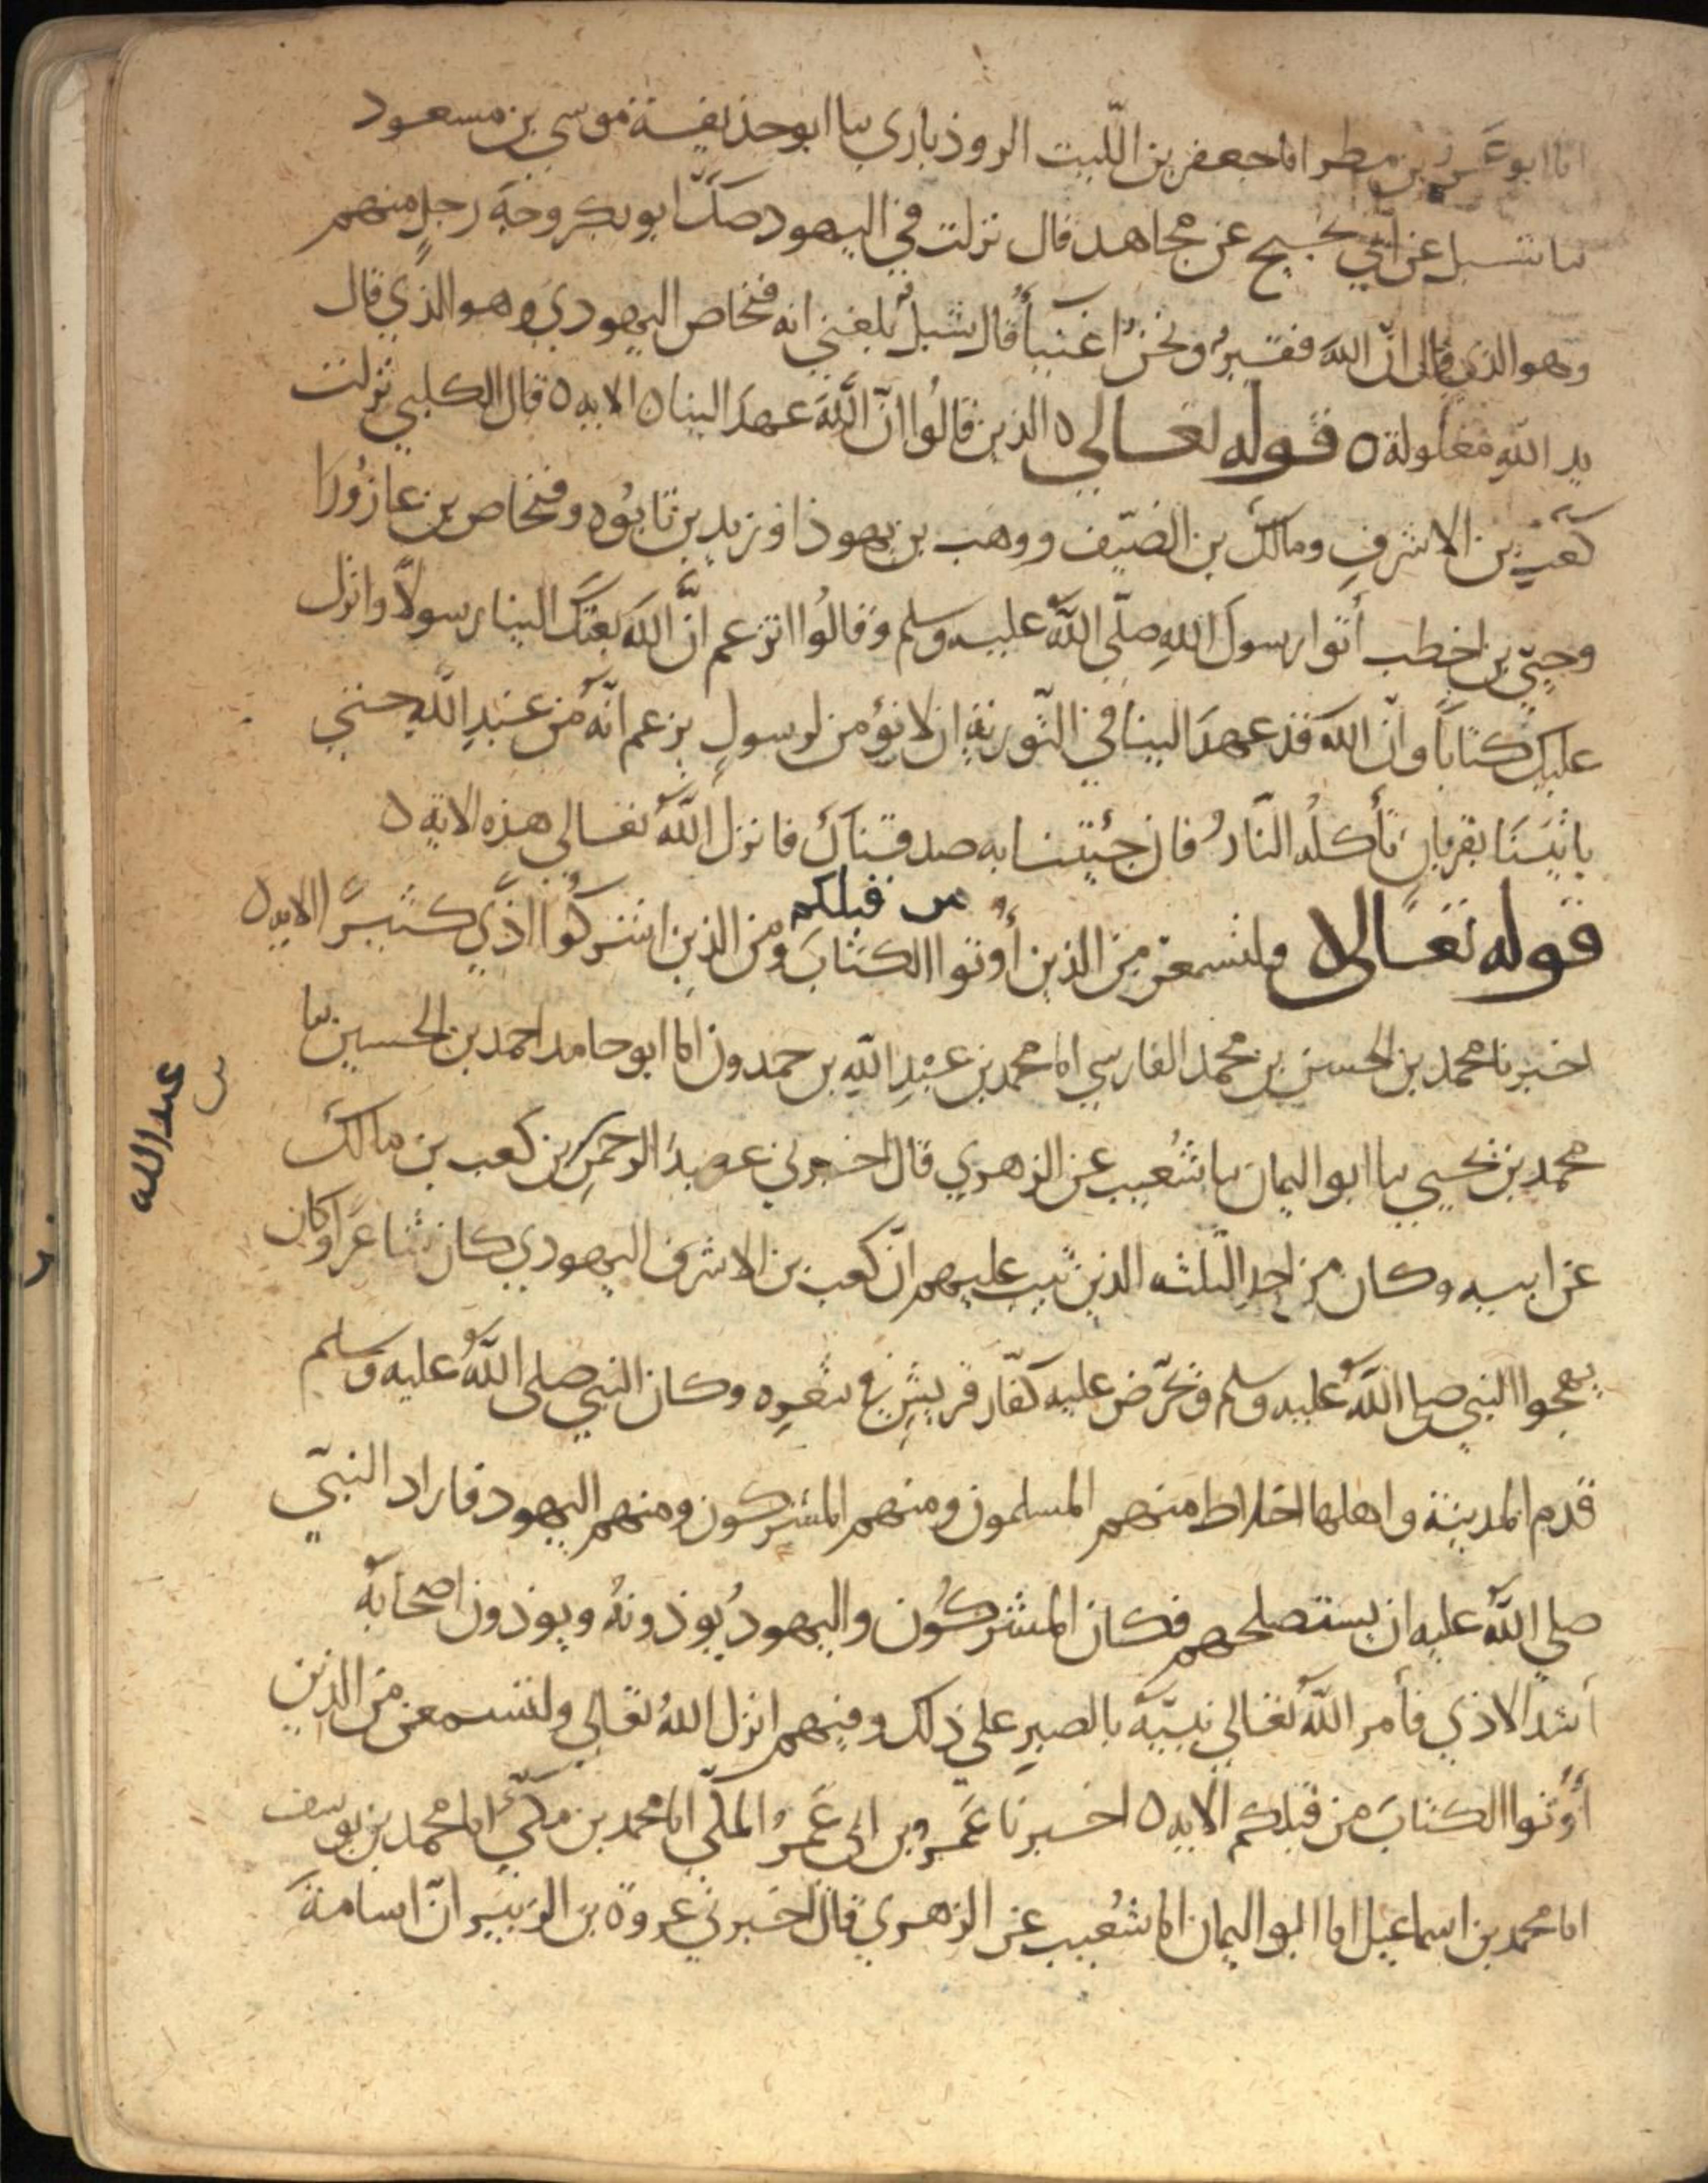 انا ابو عمرو بن مطر انا جعفر بن اللّيث الروذباري ثنا ابو حذيفة موسى بن مسعود
ثنا شبل عن ابي نجيح عن مجاهد قال نزلت في اليهود صكّ ابو بكر وجهَ رجلٍ منهم
وهو الذي قال انّ اللهَ فقيرٌ ونحنُ اغنيآءُ قال شبلٌ بلغني انه فنحاص اليهودي وهو الذي قال
يد الله مغلولة ٥ قوله تعالى ٥ الذين قالُوا انّ اللّهَ عهدَ الينا ٥ الايه ٥ قال الكلبي نزلت
كعبِ بن الاشرفِ ومالك بن الضيّف ووهب بن يهوذا وزيد بن تابُوه وفنحاص بن عازُورَا
وحييّ بن اخطب أتوا رسولَ اللهِ صلّى اللّهُ عليه وسلم وقالُوا اتزعم انّ اللهَ بعثكَ الينا رسولاً وانزل
عليك كتاباً وانّ اللهَ قد عهدَ الينا في التّوريةِ ان لا نؤمن لرسولٍ يزعم انّه من عندِ اللهِ حتى
ياتيَنَا بقربانٍ تأكلُه النّارُ فان جئتنا به صدقناك فانزل اللّهُ تعالى هذه الاية ٥
قوله تعالى ٥ ولتسمعنّ مِنَ الذين أُوتوا الكتابَ من قبلكم ومن الذين اشركُوا اذًى كثيرًا الايه ٥
اخبرنا محمد بن الحسن بن محمد الفارسي انا محمد بن عبْدِ اللهِ بن حمدون انا ابو حامد احمد بن الحسين ثنا
محمد بن يحيى ثنا ابو اليمان ثنا شُعيب عن الزهري قال اخبرني عبدُ الرحمنِ بن كعب بن مالك
عبد الله
بن
عن ابيه وكان من احد الثلثه الذين تيب عليهم انّ كعب بن الاشرف اليهودي كان شاعرًا وكان
يهجوا النبي صلى اللّهُ عليه وسلم ويحرّض عليه كفّار قريشٍ في شعرِه وكان النبي صلى اللّهُ عليه وسلم
قدم المدينة واهلها اخلاط منهم المسلمون ومنهم المشركون ومنهم اليهود فاراد النبيّ
صلى اللّهُ عليه ان يستصلحهم فكان المشركُون واليهودُ يوذونهُ ويوذون اصحابَهُ
أشدّ الاذى فأمر اللّهُ تعالى نبيّهُ بالصبرِ على ذلك وفيهم انزل اللهُ تعالى ولتسمعن من الذين
أُوتوا الكتابَ من قبلكم الايه ٥ اخبرنا عَمرو بن ابي عَمرو المكّي انا محمد بن مكّي انا محمد بن يوسف
انا محمد بن اسماعيل انا ابو اليمان انا شُعيب عن الزهري قال اخبرني عروة بن الزبير انّ اسامة